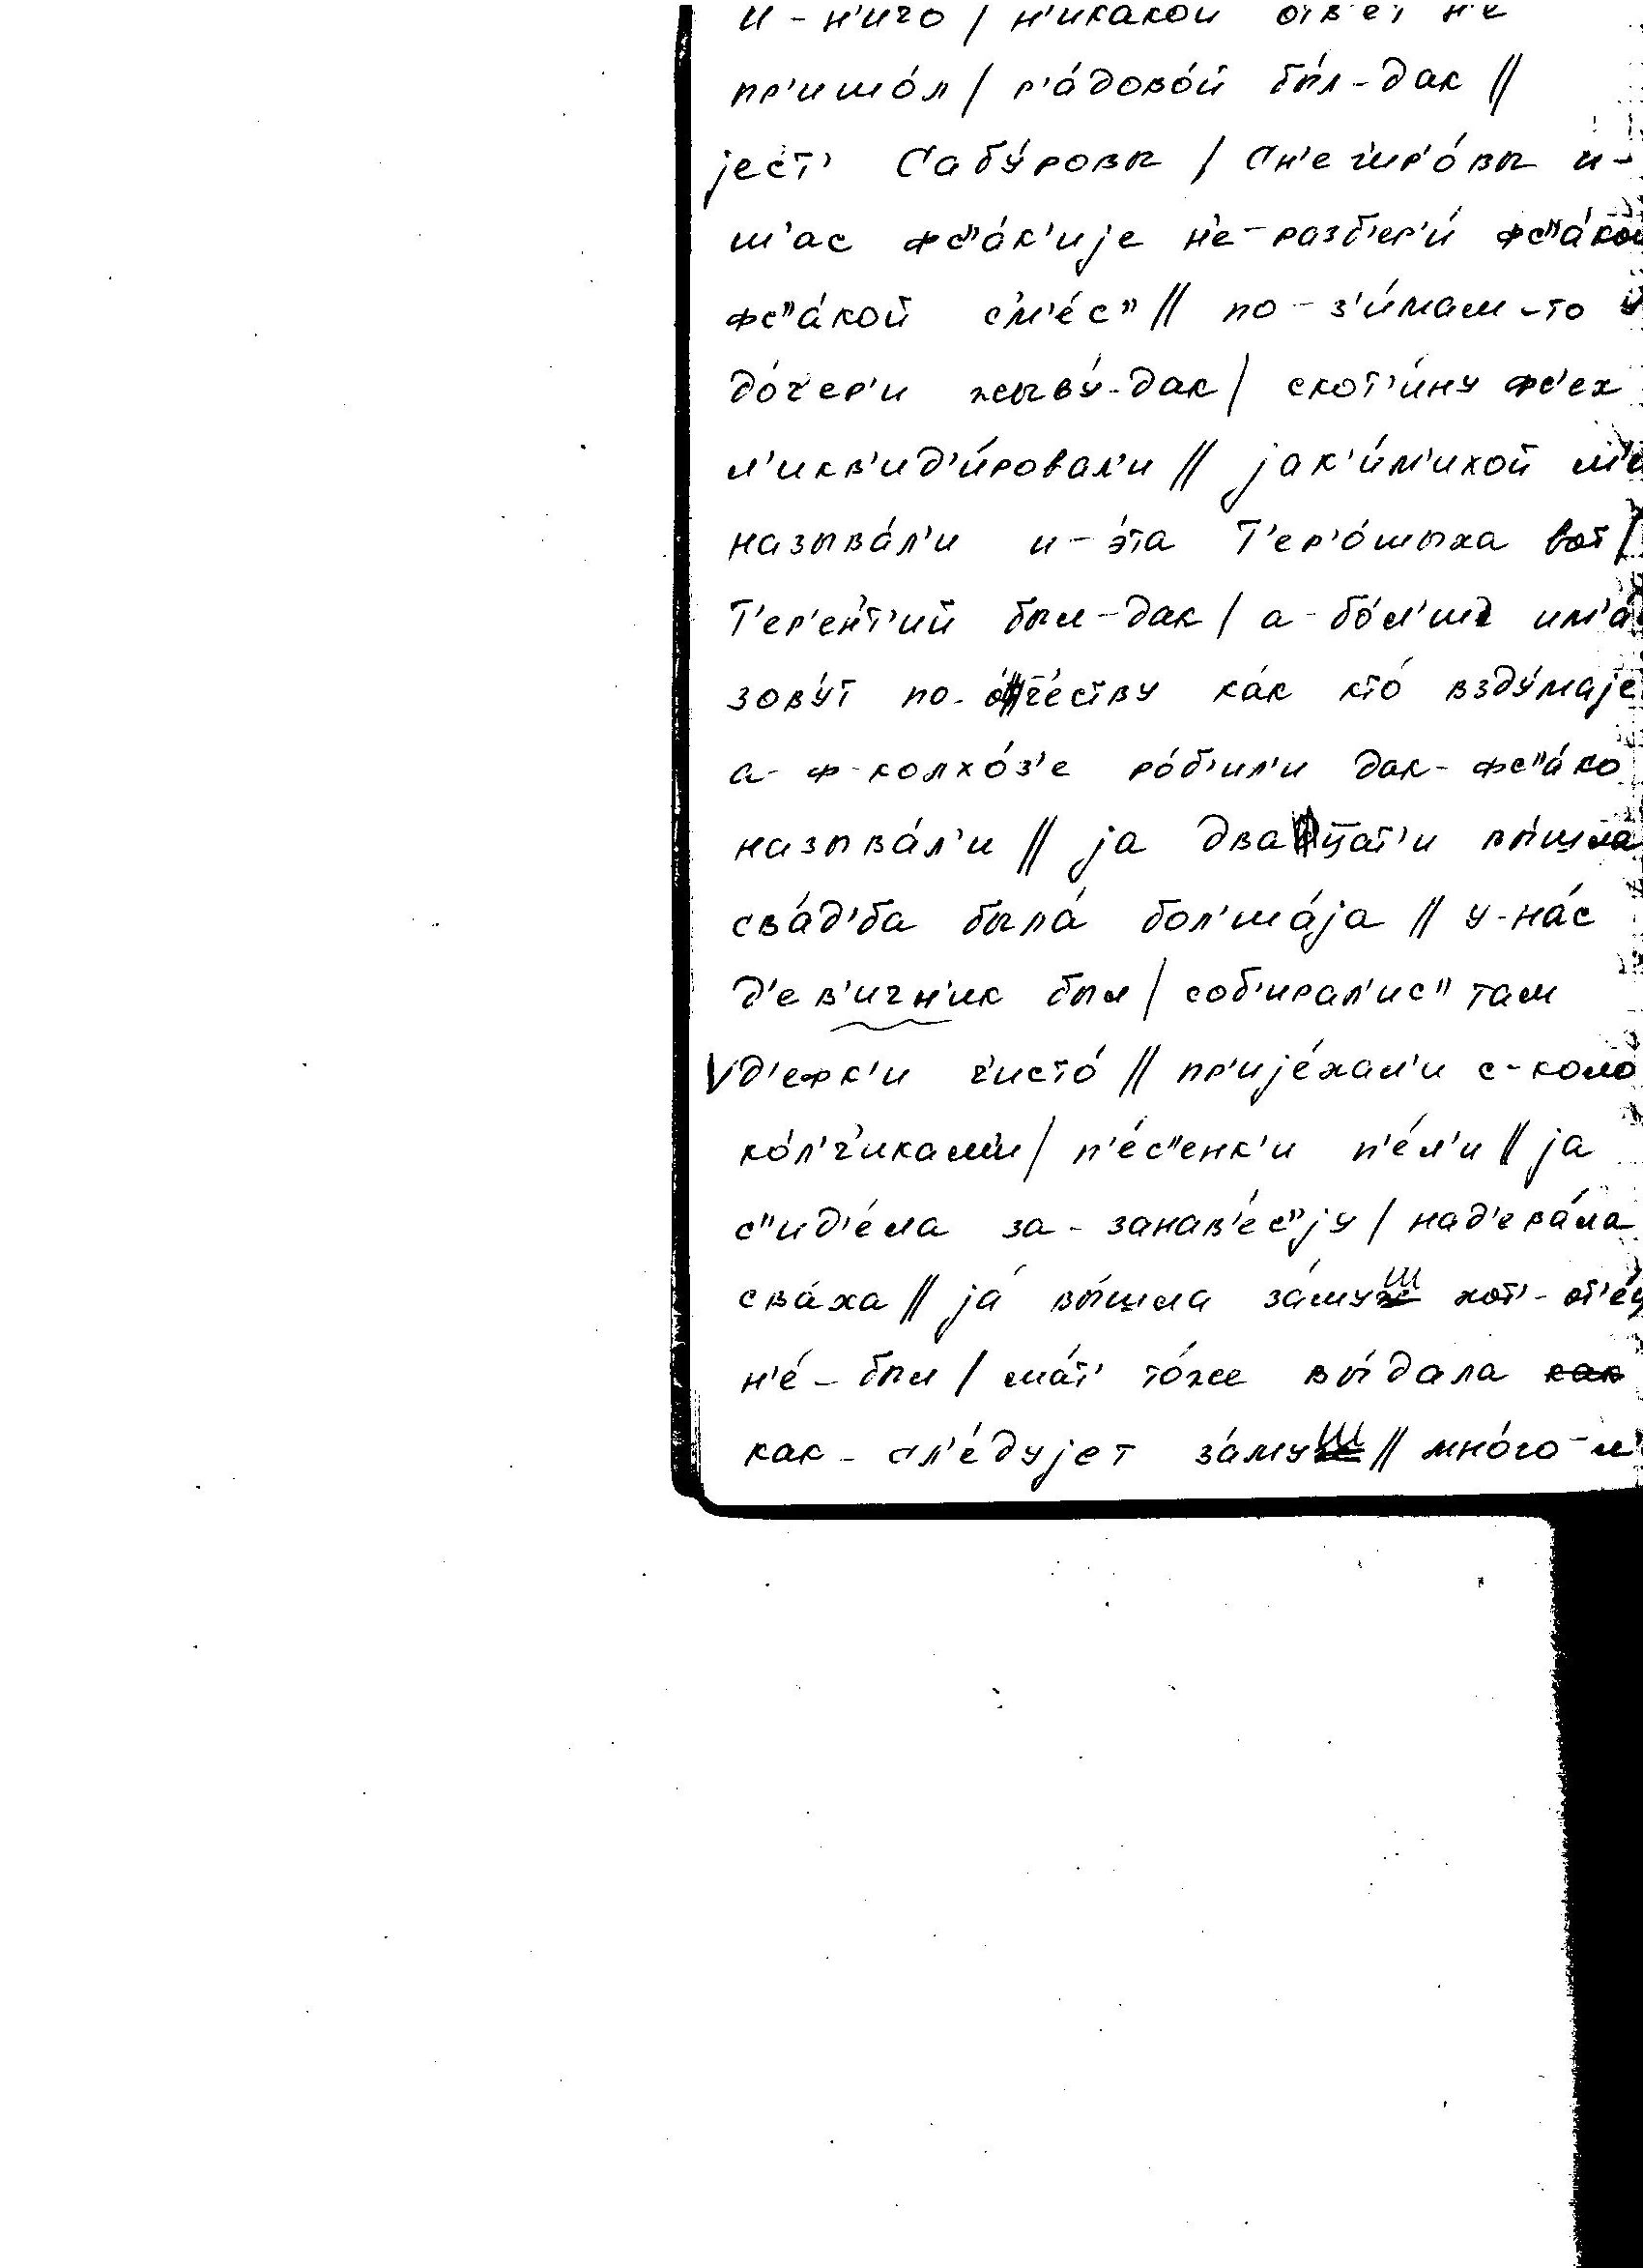 и-н'иго / н'икакой отв'ет н'е
пр'ишо́л / р'а́дово́й бы́л-дак //
јест' Сабу́ровы / Сн'егир'о́вы и-
ш'ас фс"а́к'ије н'е-разб'ер'и́ фс"а́кой
фс"а́кой см'е́с" // по-з'и́мам-то у
до́ч'ер'и жыву́-дак / скот'и́ну фс'ех
л'икв'ид'и́ровал'и // јак'и́м'ихой м'
называ́л'и и-э́та Т'ер'о́шыха вот /
Т'ер'е́нт'ий был-дак / а-бо́л'ше им'а́
зову́т по-о́т'ч'еству ка́к кто́ взду́маје
а-ф-колхо́з'е ро́б'ил'и дак-фс"а́ко
называ́л'и // ја два́цат'и вы́шла
сва́д'ба была́ бол'ша́ја // у-на́с
д'ев'ичн'ик был / соб'ирал'ис" там
д'ефк'и ч'исто́ // пр'ије́хал'и с-коло
ко́л'ч'иками / п'е́с"енк'и п'е́л'и // ја
с"ид'е́ла за-занав'е́с"ју / над'ева́ла
сва́ха // ја́ вы́шла за́муш хот'-от'е́ц
н'е́-был / ма́т' то́же вы́дала как
как-сл'е́дујет за́муш // мно́го-л'